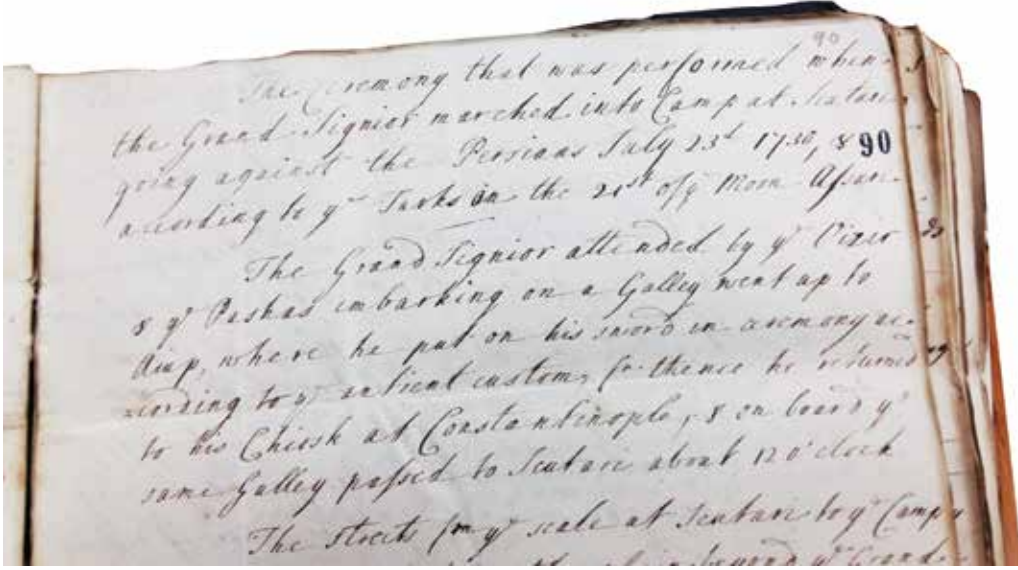 90
The Ceremony that was performed when
the Grand Signior marched into Camp at Scutari
going against the Persians July 23d 1730, &
90
according to ye Turks on the 21st of ye Moon
The Grand Signior attended by ye Vizir
& ye Pashas embarking on a Galley went up to
Aiup, where he put on his sword in ceremony ac-
cording to ye antient custom, fm thence he returned
to his Chiosk at Constantinople, & on board ye
same Galley passed to Scutari about 12 o'clock
The streets fm ye scale at Scutari to ye Camp
beyond ye Grand